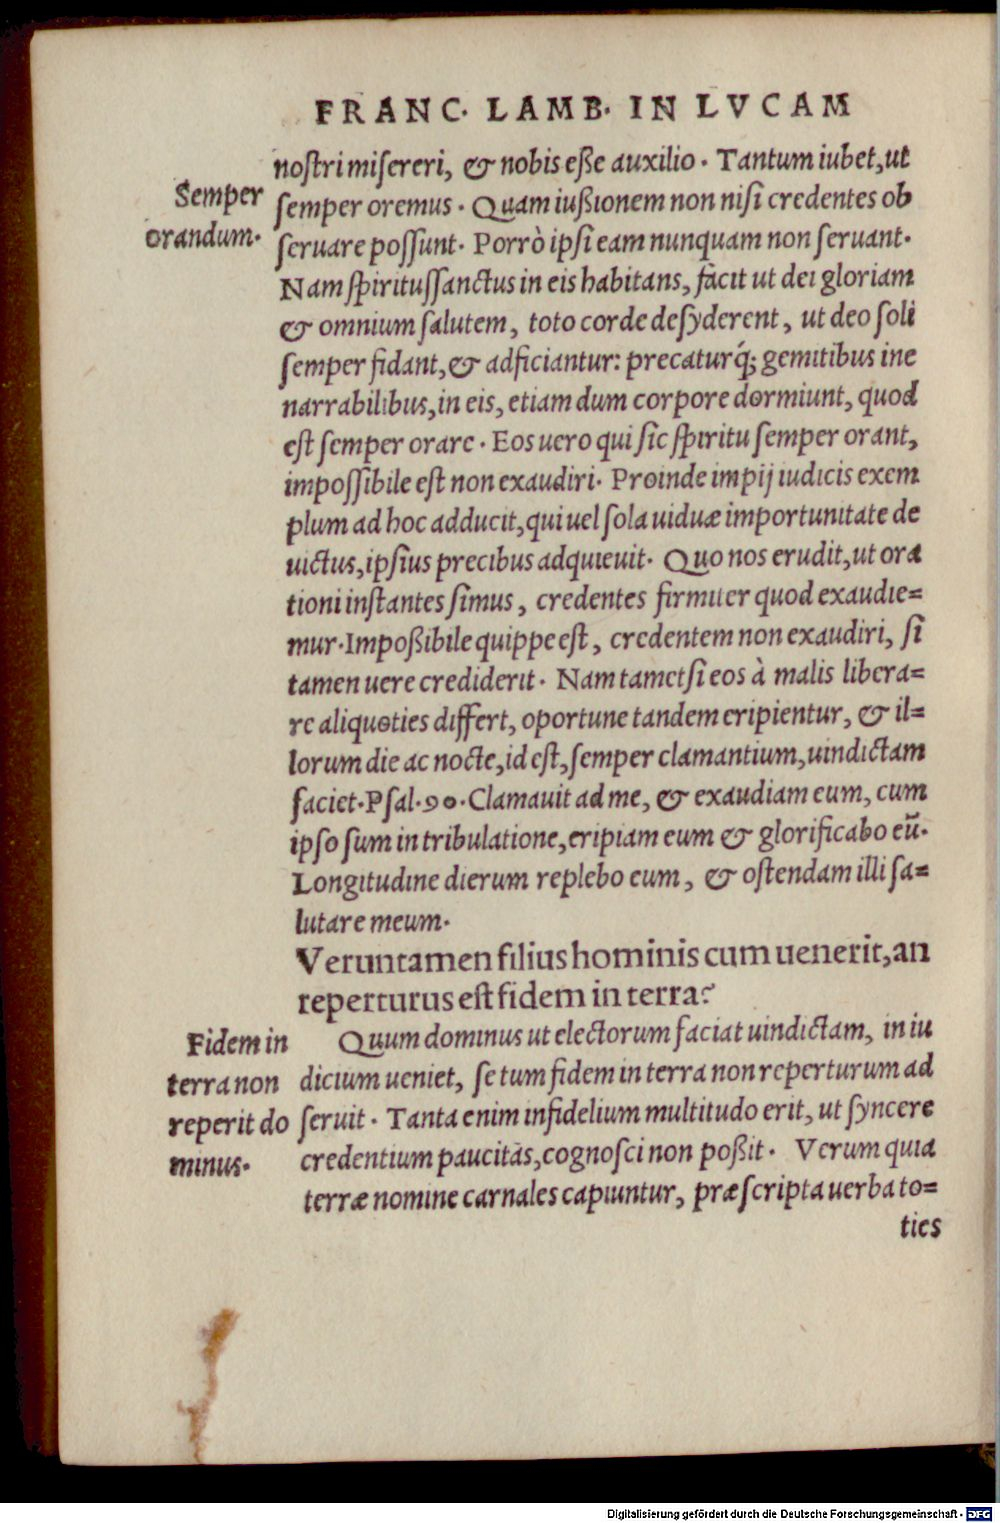 FRANC. LAMB. IN LVCAM
nostri misereri, & nobis eße auxilio. Tantum iubet, ut
Semper
semper oremus. Quam iußionem non nisi credentes ob
orandum.
seruare possunt. Porrò ipsi eam nunquam non seruant.
Nam spiritussanctus in eis habitans, facit ut dei gloriam
& omnium salutem, toto corde desyderent, ut deo soli
semper fidant, & adficiantur: precaturq́; gemitibus ine
narrabilibus, in eis, etiam dum corpore dormiunt, quod
est semper orare. Eos uero qui sic spiritu semper orant,
impossibile est non exaudiri. Proinde impij iudicis exem
plum ad hoc adducit, qui uel sola uiduæ importunitate de
uictus, ipsius precibus adquieuit. Quo nos erudit, ut ora
tioni instantes simus, credentes firmiter quod exaudie=
mur. Impoßibile quippe est, credentem non exaudiri, si
tamen uere crediderit. Nam tametsi eos à malis libera=
re aliquoties differt, oportune tandem eripientur, & il=
lorum die ac nocte, id est, semper clamantium, uindictam
faciet. Psal. 90. Clamauit ad me, & exaudiam eum, cum
ipso sum in tribulatione, eripiam eum & glorificabo eū.
Longitudine dierum replebo eum, & ostendam illi sa=
lutare meum.
Veruntamen filius hominis cum uenerit, an
reperturus est fidem in terra?
Fidem in
terra non
reperit do
minus.
Quum dominus ut electorum faciat uindictam, in iu
dicium ueniet, se tum fidem in terra non reperturum ad
seruit. Tanta enim infidelium multitudo erit, ut syncere
credentium paucitas, cognosci non poßit. Verum quia
terræ nomine carnales capiuntur, præscripta uerba to=
ties
Digitalisierung gefördert durch die Deutsche Forschungsgemeinschaft - DFG